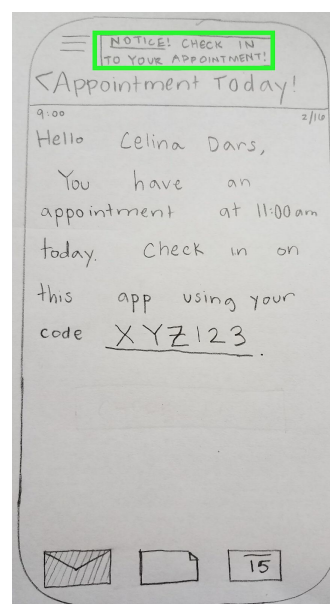 NOTICE! CHECK IN
TO YOUR APPOINTMENT!
<Appointment Today!
9:00 2/16
Hello Celina Dars,
You have an
appointment at 11:00am
today. Check in on
this app using your
code XYZ123.
15